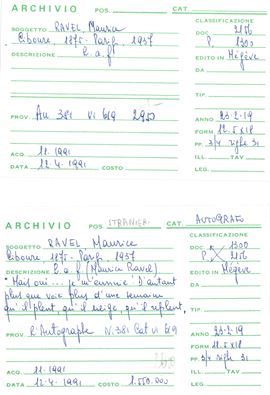 ARCHIVIO POS. CAT.
CLASSIFICAZIONE
SOGGETTO RAVEL Maurice
DOC 2156
Ciboure, 1875 - Parigi, 1937
P. 1300
DESCRIZIONE L.a.f.
EDITO IN Mégève
DA
TIP.
PROV. Au 381 VI 619 2950
ANNO 23-2-19
FORM 12.5x18
PP. 3/4 righe 31
ACQ. 11.1991
ILL. TAV.
DATA 12.4.1991 COSTO
LEG.
ARCHIVIO POS. STRANIERI CAT. AUTOGRAFO
CLASSIFICAZIONE
SOGGETTO RAVEL Maurice
DOC 1300
Ciboure, 1875 - Parigi 1937
P. 2156
DESCRIZIONE L.a.f. (Maurice Ravel)
EDITO IN Mégève
"Mais oui... je m'ennuie! D'autant
DA
plus que voici plus d'une semaine
TIP.
qu'il pleut, qu'il neige, qu'il repleut,
PROV. l'Autographe N. 381 Cat VI 619
ANNO 23-2-19
FORM 12.5x18
PP. 3/4 righe 31
ACQ. 11.1991
ILL. TAV.
DATA 12.4.1991 COSTO 1.550.000
LEG.